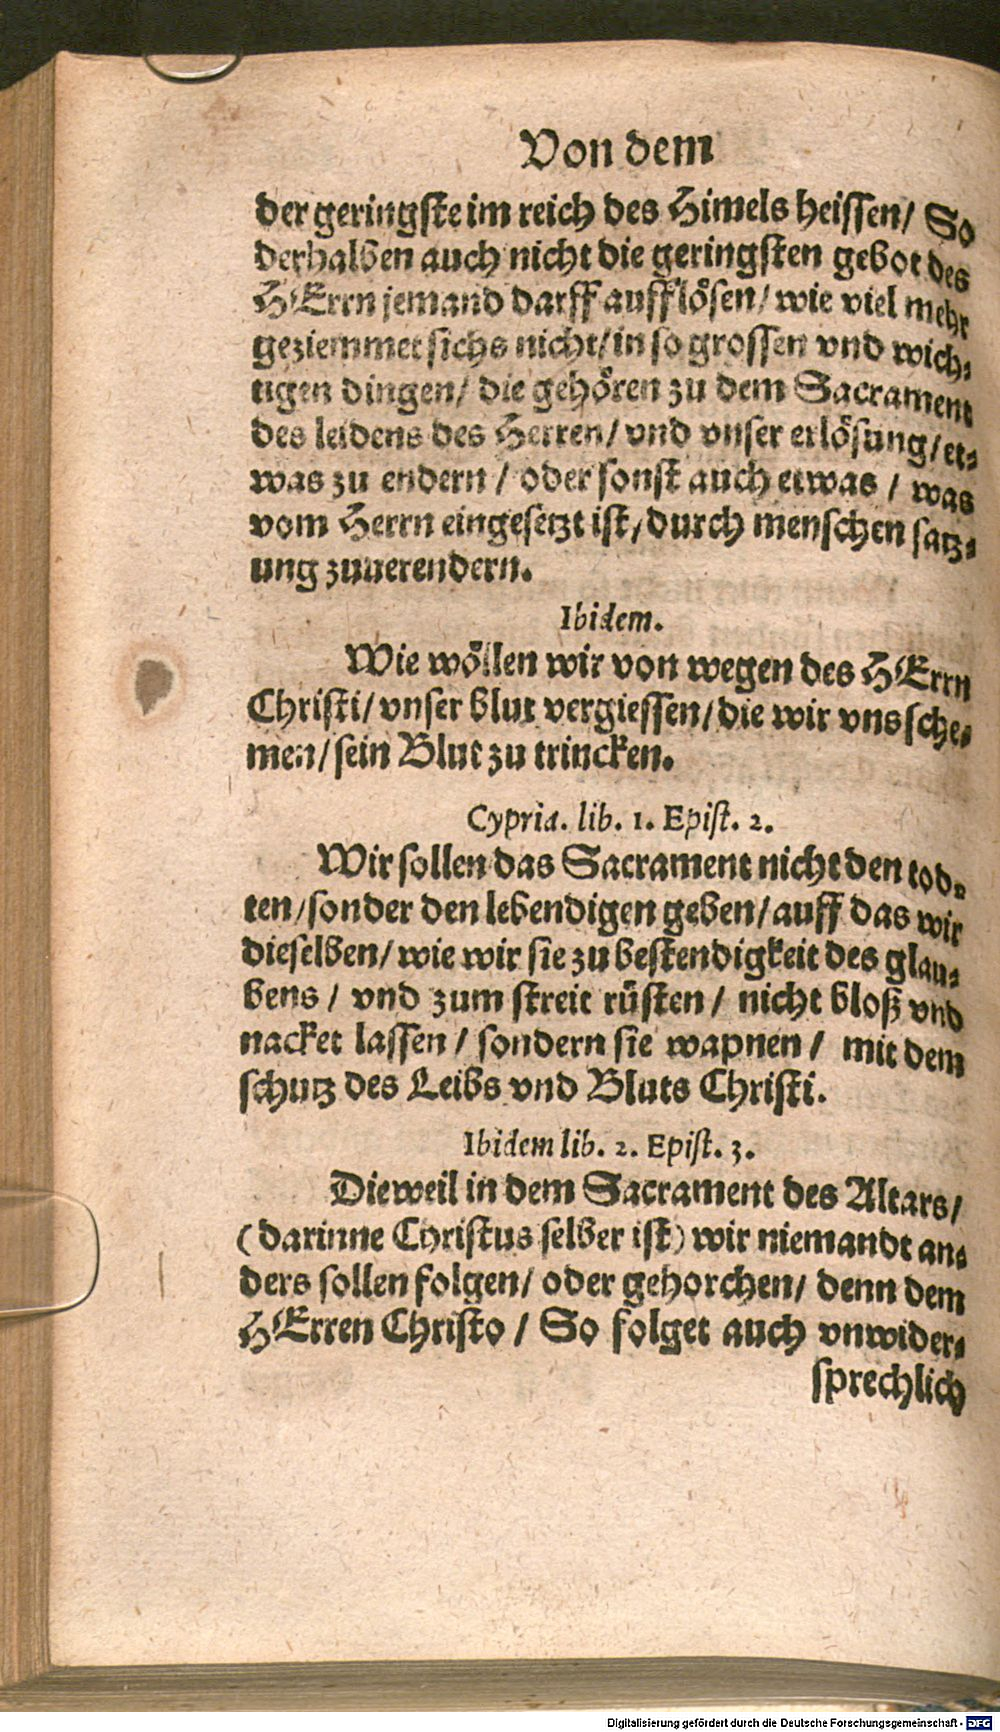 Von dem
der geringste im reich des Himels heissen/ So
derhalben auch nicht die geringsten gebot des
HErrn jemand darff aufflösen/ wie viel mehr
geziemmet sichs nicht/ in so grossen vnd wich-
tigen dingen/ die gehören zu dem Sacrament
des leidens des Herren/ vnd vnser erlösung/ et-
was zu endern/ oder sonst auch etwas/ was
vom Herrn eingesetzt ist/ durch menschen satz-
ung zuuerendern.
Ibidem.
Wie wöllen wir von wegen des HErrn
Christi/ vnser blut vergiessen/ die wir vns sche-
men/ sein Blut zu trincken.
Cypria. lib. 1. Epist. 2.
Wir sollen das Sacrament nicht den tod-
ten/ sonder den lebendigen geben/ auff das wir
dieselben/ wie wir sie zu bestendigkeit des glau-
bens/ vnd zum streit rüsten/ nicht bloß vnd
nacket lassen/ sondern sie wapnen/ mit dem
schutz des Leibs vnd Bluts Christi.
Ibidem lib. 2. Epist. 3.
Dieweil in dem Sacrament des Altars/
(darinne Christus selber ist) wir niemandt an-
ders sollen folgen/ oder gehorchen/ denn dem
HErren Christo/ So folget auch vnwider-
sprechlich
Digitalisierung gefördert durch die Deutsche Forschungsgemeinschaft - DFG